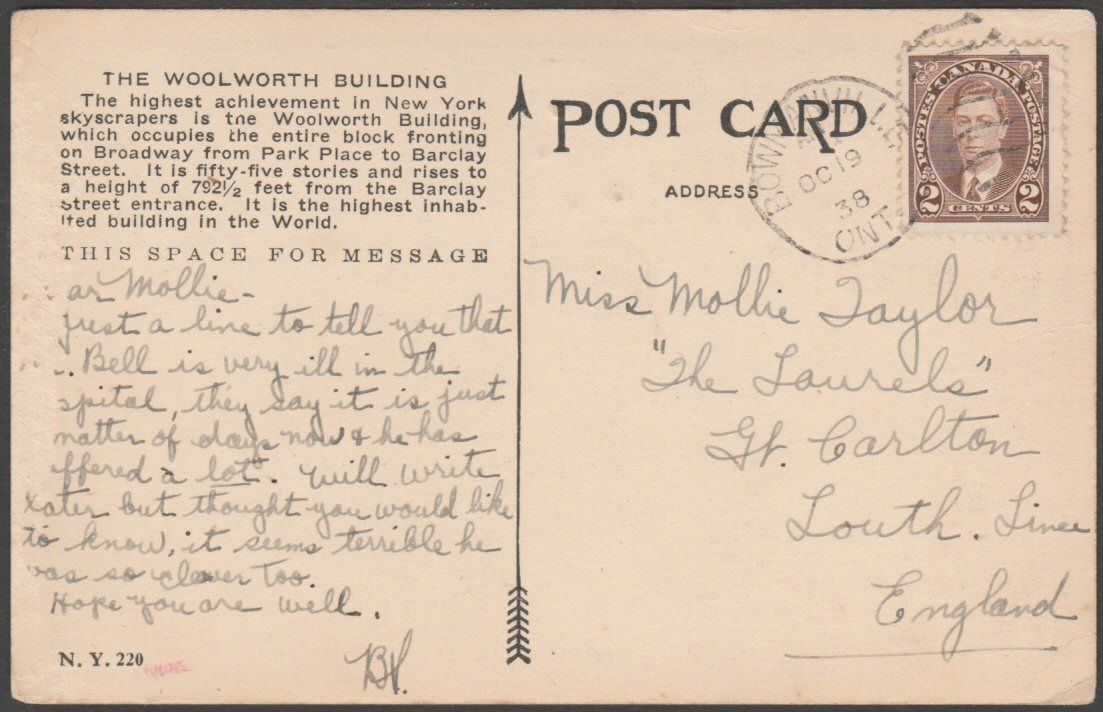 THE WOOLWORTH BUILDING
The highest achievement in New York
skyscrapers is the Woolworth Building,
which occupies the entire block fronting
on Broadway from Park Place to Barclay
Street. It is fifty-five stories and rises to
a height of 792½ feet from the Barclay
Street entrance. It is the highest inhab-
ited building in the World.
THIS SPACE FOR MESSAGE
ar Mollie-
just a line to tell you that
Bell is very ill in the
spital, they say it is just
matter of days now & he has
ffered a lot. Will write
later but thought you would like
to know, it seems terrible he
was so clever too.
Hope you are well.
N. Y. 220
POST CARD
ADDRESS
BOWMANVILLE
OC 19
38
ONT
POSTES CANADA POSTAGE
2 CENTS 2
Miss Mollie Taylor
"The Laurels"
Gt. Carlton
Louth. Lincs
England